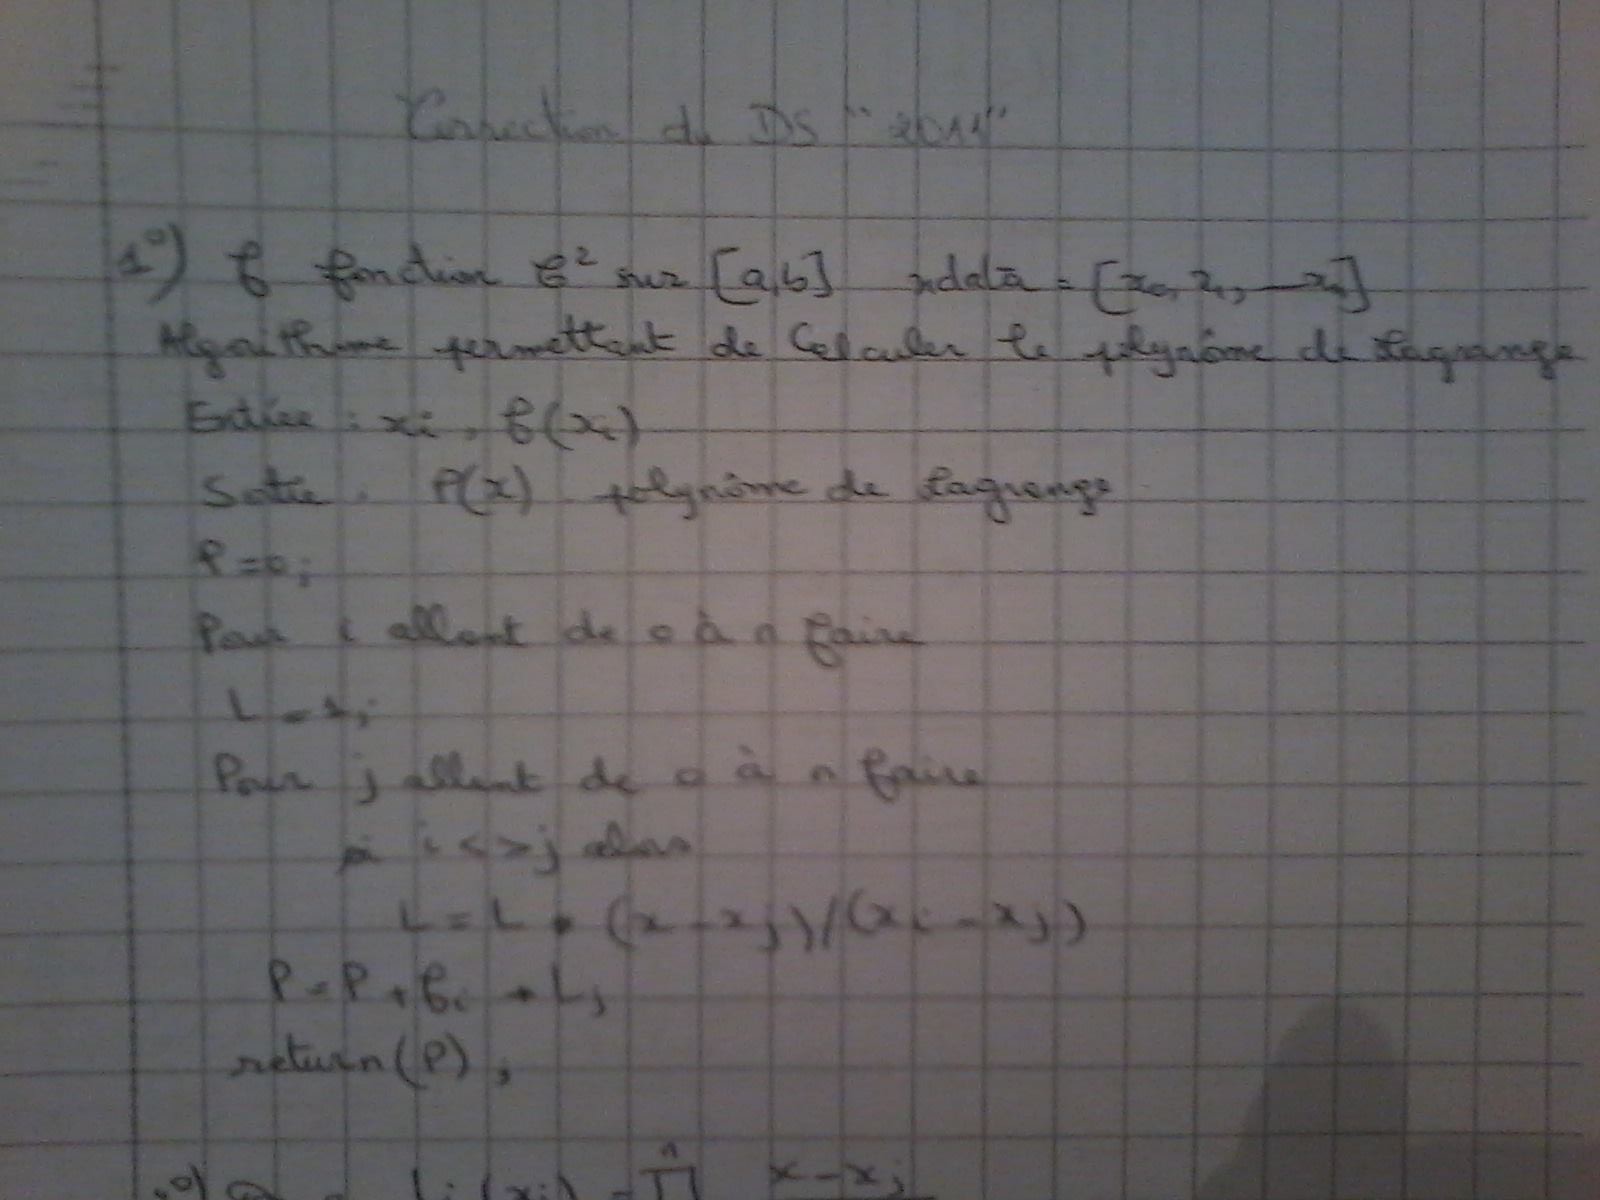 Correction du DS "2011"
1°) f fonction C² sur [a,b] xdata = [x₀, x₁, — xₙ]
Algorithme permettant de Calculer le polynôme de Lagrange
Entrée : xi, f(xi)
Sotie : P(x) polynôme de Lagrange
P=0;
Pour i allant de 0 à n faire
L=1;
Pour j allant de 0 à n faire
si i<>j alors
L = L * (x-xj)/(xi-xj)
P=P+fi * L;
return(P);
Li(xi) = ∏ x-xj
n